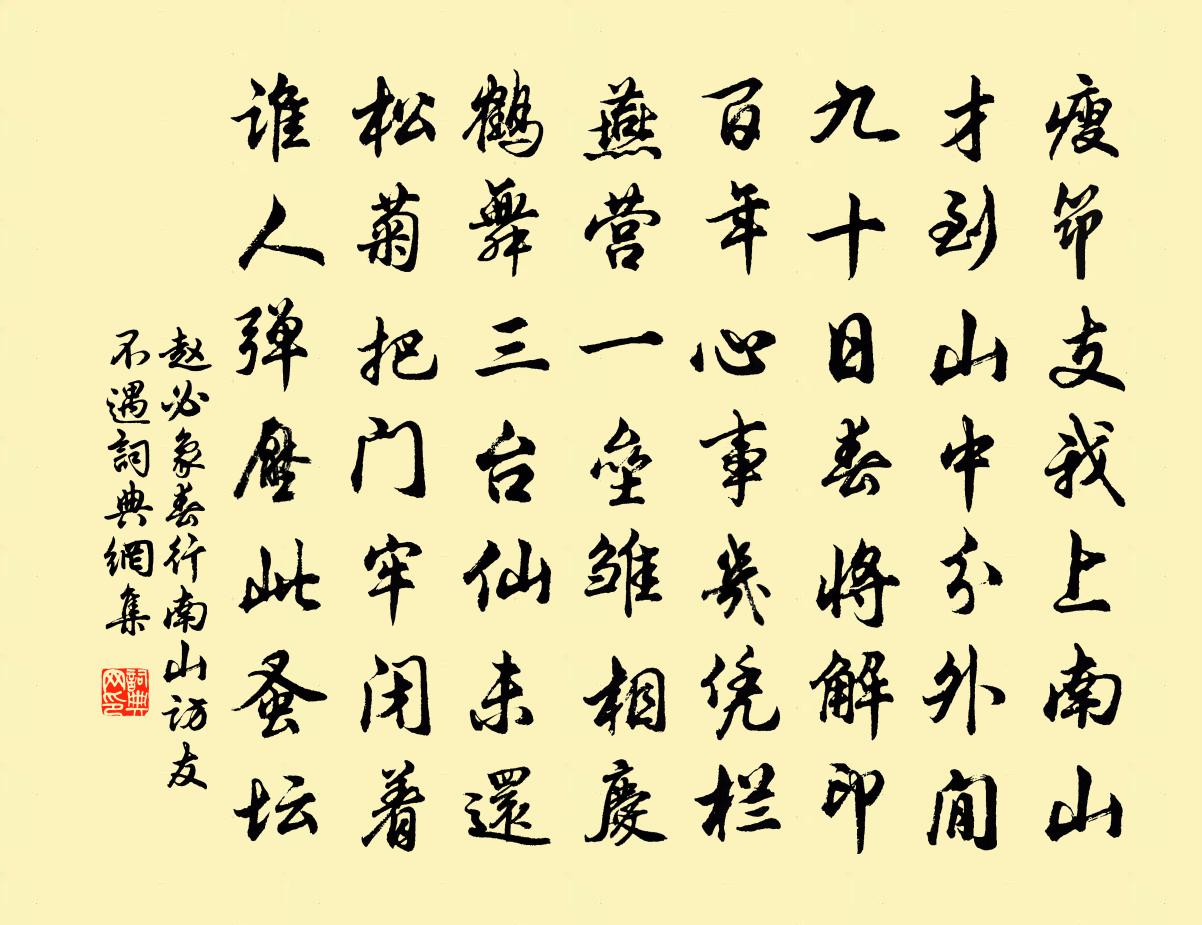 瘦筇支我上南山
才到山中分外閒
九十日春将解印
百年心事幾凭栏
燕营一垒雏相慶
鶴舞三台仙未還
松菊把门牢闭着
谁人弹壓此蚤坛
赵必象春行南山访友
不遇詞典網集
詞典网印